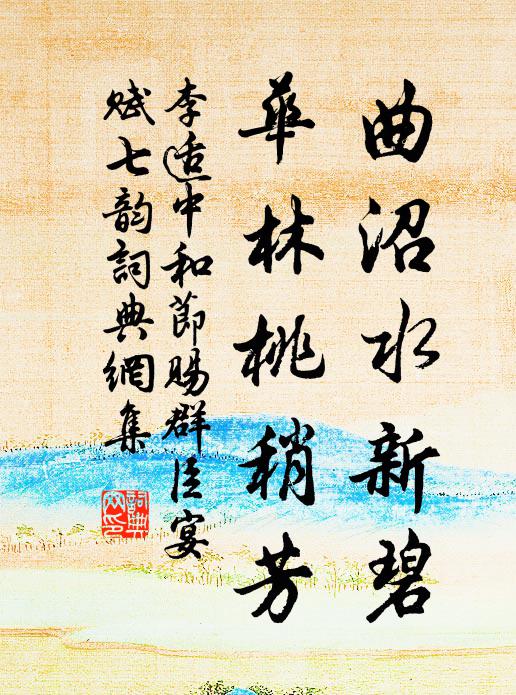 曲沼水新碧
華林桃稍芳
李适中和節賜群臣宴
賦七韵詞典網集